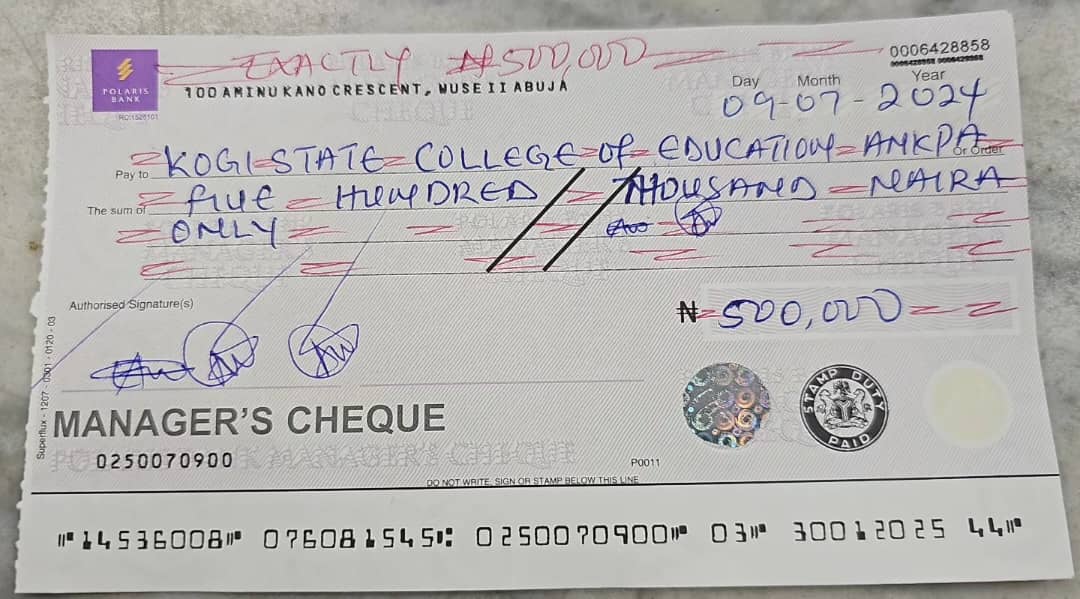 EXACTLY ₦500,000
0006428858
0006428858 0006428858
POLARIS BANK
RC:1526101
100 AMINU KANO CRESCENT, WUSE II ABUJA
Day Month Year
09-07-2024
Pay to KOGI STATE COLLEGE OF EDUCATION ANKPA or Order
The sum of five HUNDRED THOUSAND NAIRA
ONLY
Authorised Signature(s)
₦ 500,000
STAMP DUTY PAID
MANAGER'S CHEQUE
0250070900
P0011
DO NOT WRITE, SIGN OR STAMP BELOW THIS LINE
14536008 076081545 0250070900 03 30012025 44